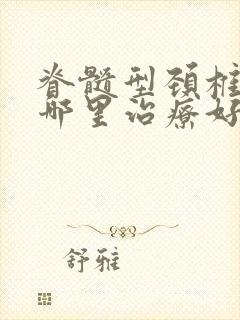 脊髓型颈椎
哪里治疗好
舒雅